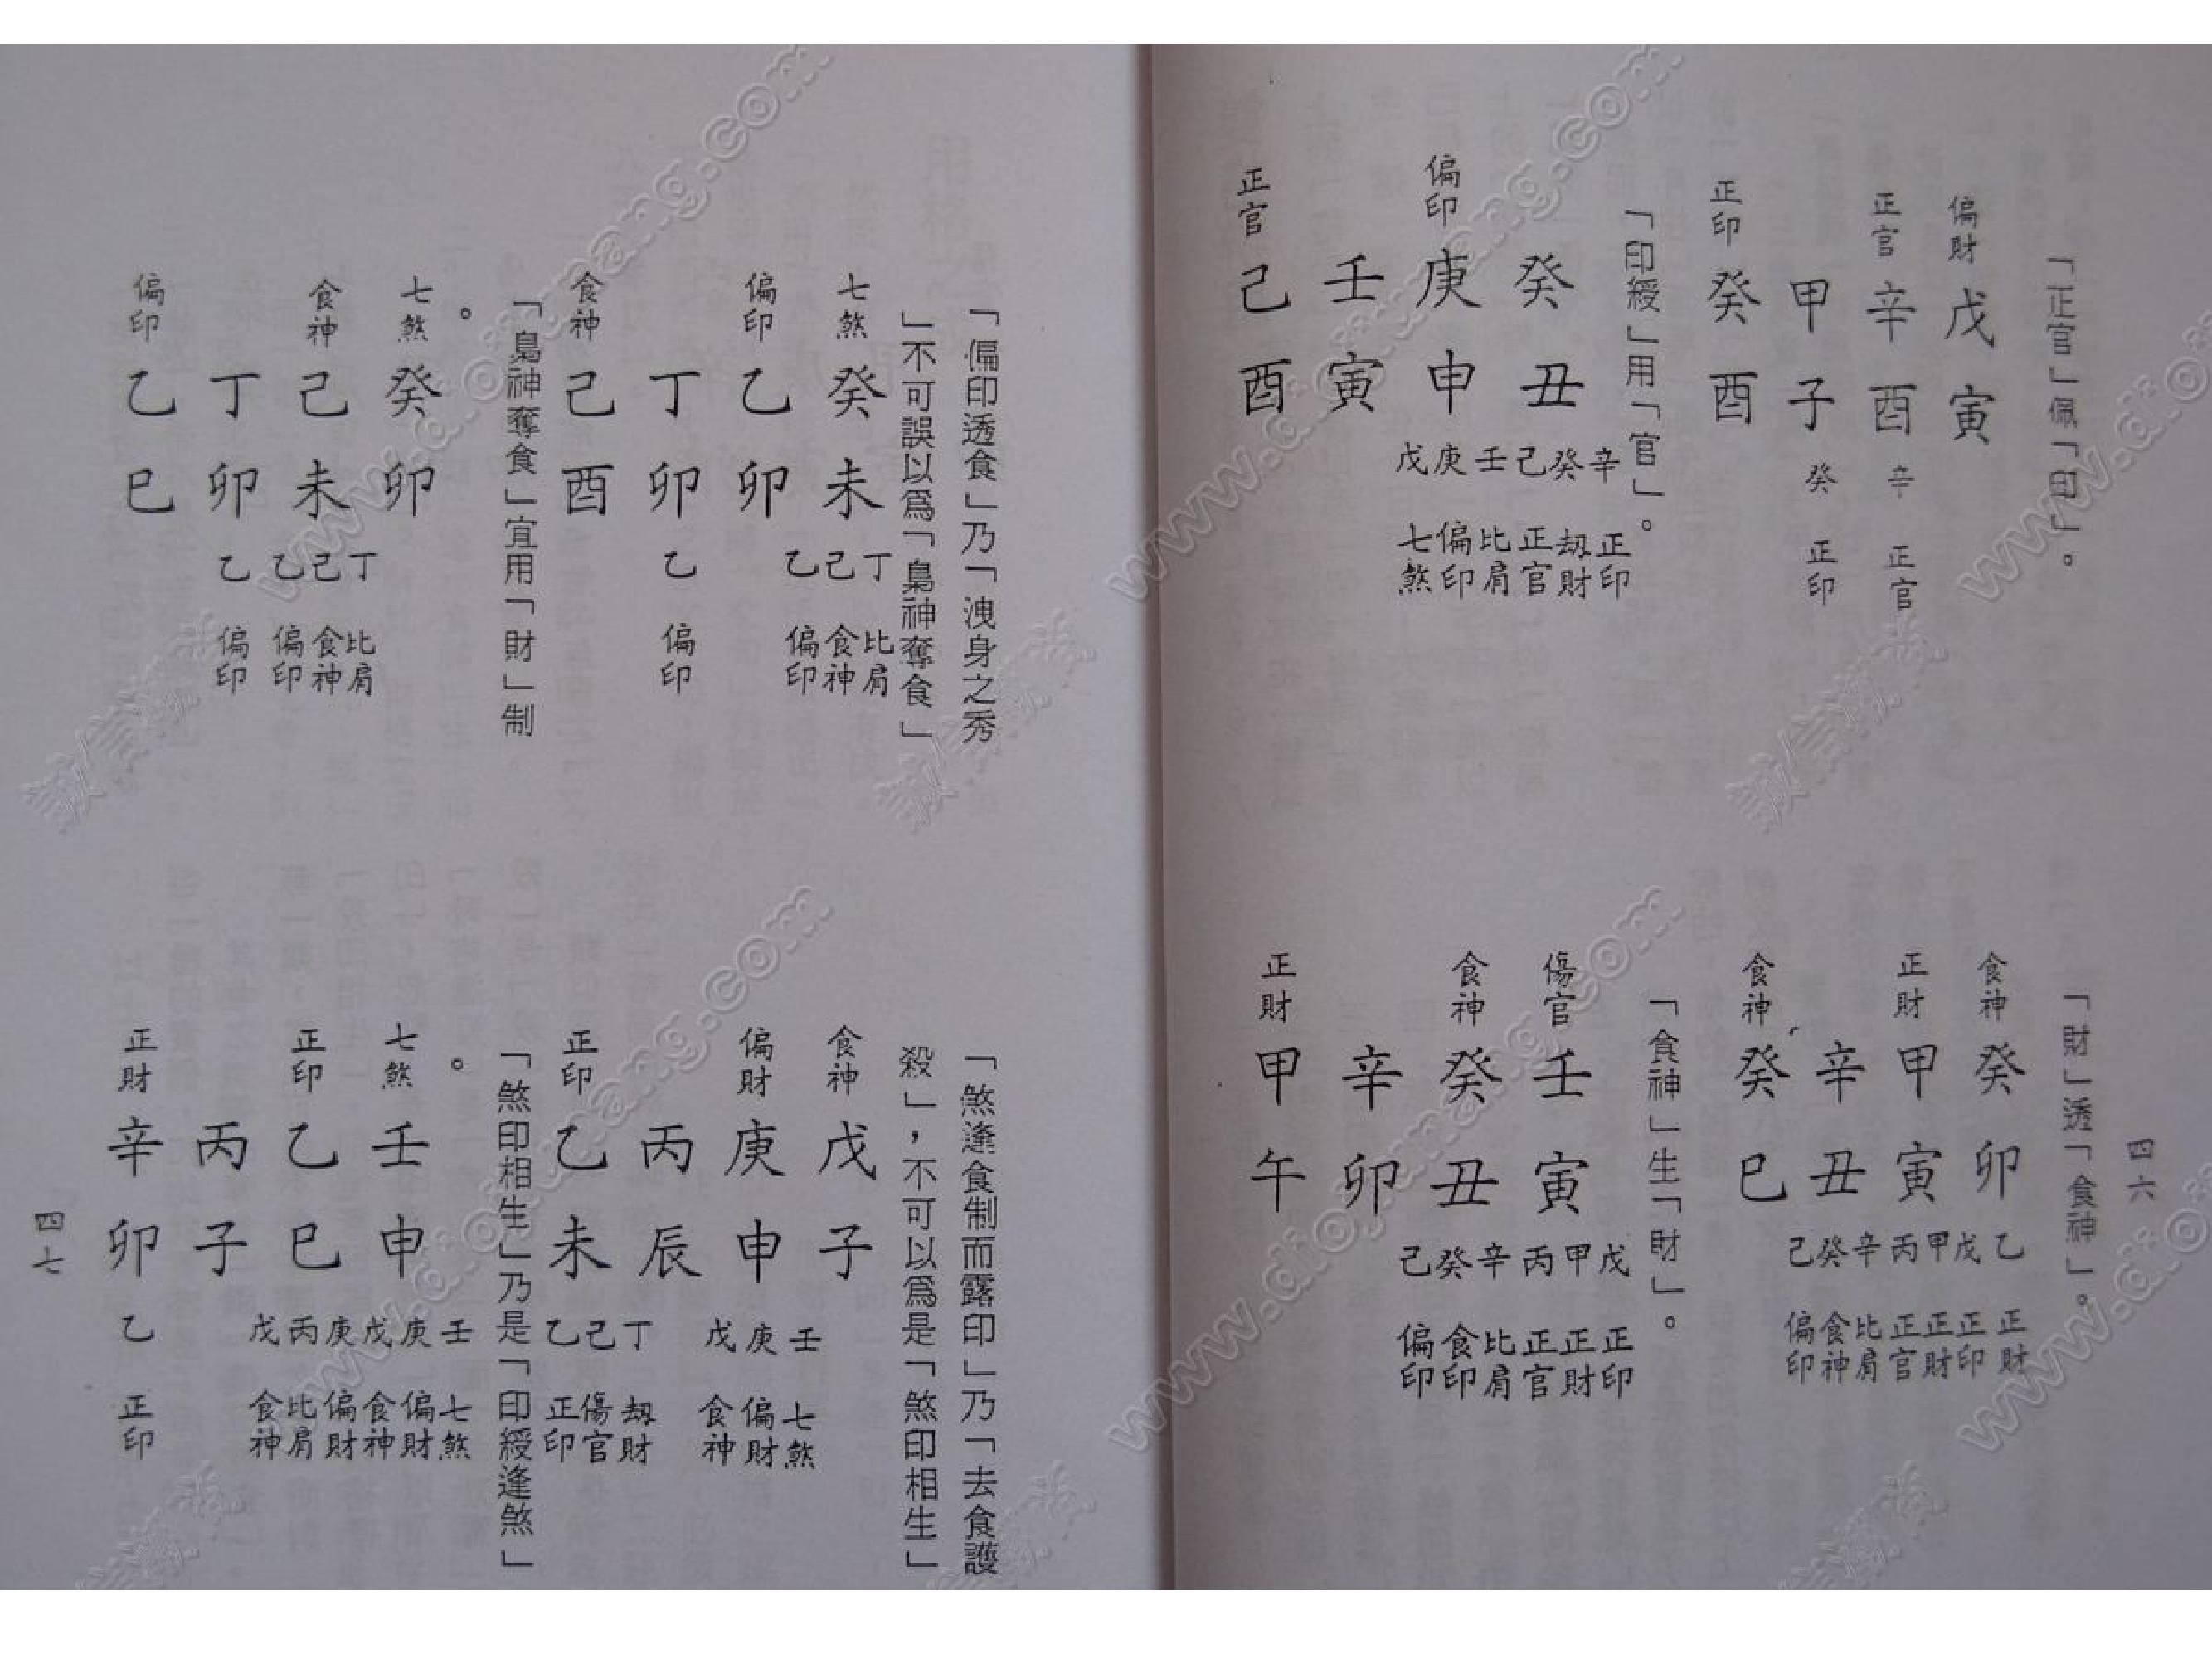 「正官」佩「印」。
偏財 戊寅
正官 辛酉 辛 正官
甲子 癸 正印
正印 癸酉
「印綬」用「官」。
癸丑 辛癸己 正印 刼財 正官
偏印 庚申 壬庚戊 比肩 偏印 七煞
壬寅
正官 己酉
四六
「財」透「食神」。
食神 癸卯 乙 正財
正財 甲寅 戊甲丙 正印 正財 正官
辛丑 辛癸己 比肩 食神 偏印
食神 癸巳
「食神」生「財」。
傷官 壬寅 戊甲丙 正印 正財 正官
食神 癸丑 辛癸己 比肩 食印 偏印
辛卯
正財 甲午
「偏印透食」乃「洩身之秀
」不可誤以爲「梟神奪食」
七煞 癸未 丁己乙 比肩 食神 偏印
偏印 乙卯
丁卯 乙 偏印
食神 己酉
「梟神奪食」宜用「財」制
。
七煞 癸卯
食神 己未 丁己乙 比肩 食神 偏印
丁卯 乙 偏印
偏印 乙巳
「煞逢食制而露印」乃「去食護
殺」，不可以爲是「煞印相生」
食神 戊子
偏財 庚申 壬庚戊 七煞 偏財 食神
丙辰
正印 乙未 丁己乙 刼財 傷官 正印
「煞印相生」乃是「印綬逢煞」
。
七煞 壬申 壬庚戊 七煞 偏財 食神
正印 乙巳 庚丙戊 偏財 比肩 食神
丙子
正財 辛卯 乙 正印
四七